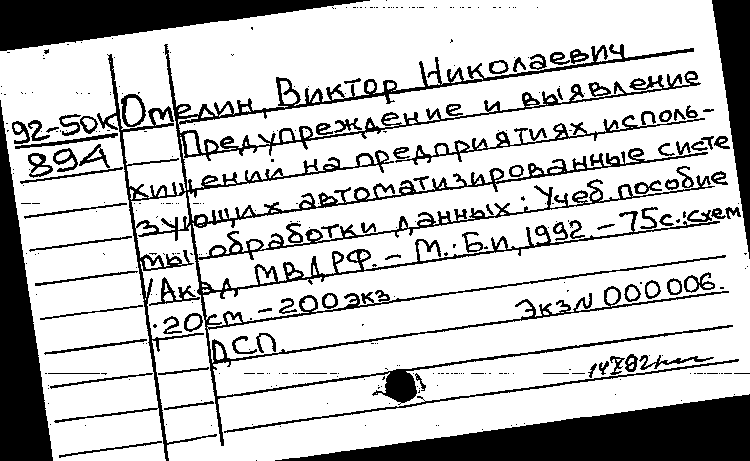 92-50К Отелин, Виктор Николаевич
894 Предупреждение и выявление
хищений на предприятиях, исполь-
зующих автоматизированные систе
мы обработки данных: Учеб. пособие
/Акад. МВД РФ. – М.: Б.и, 1992. – 75с.:схем
;20см. – 200 экз.
Экз N 000006.
ДСП.